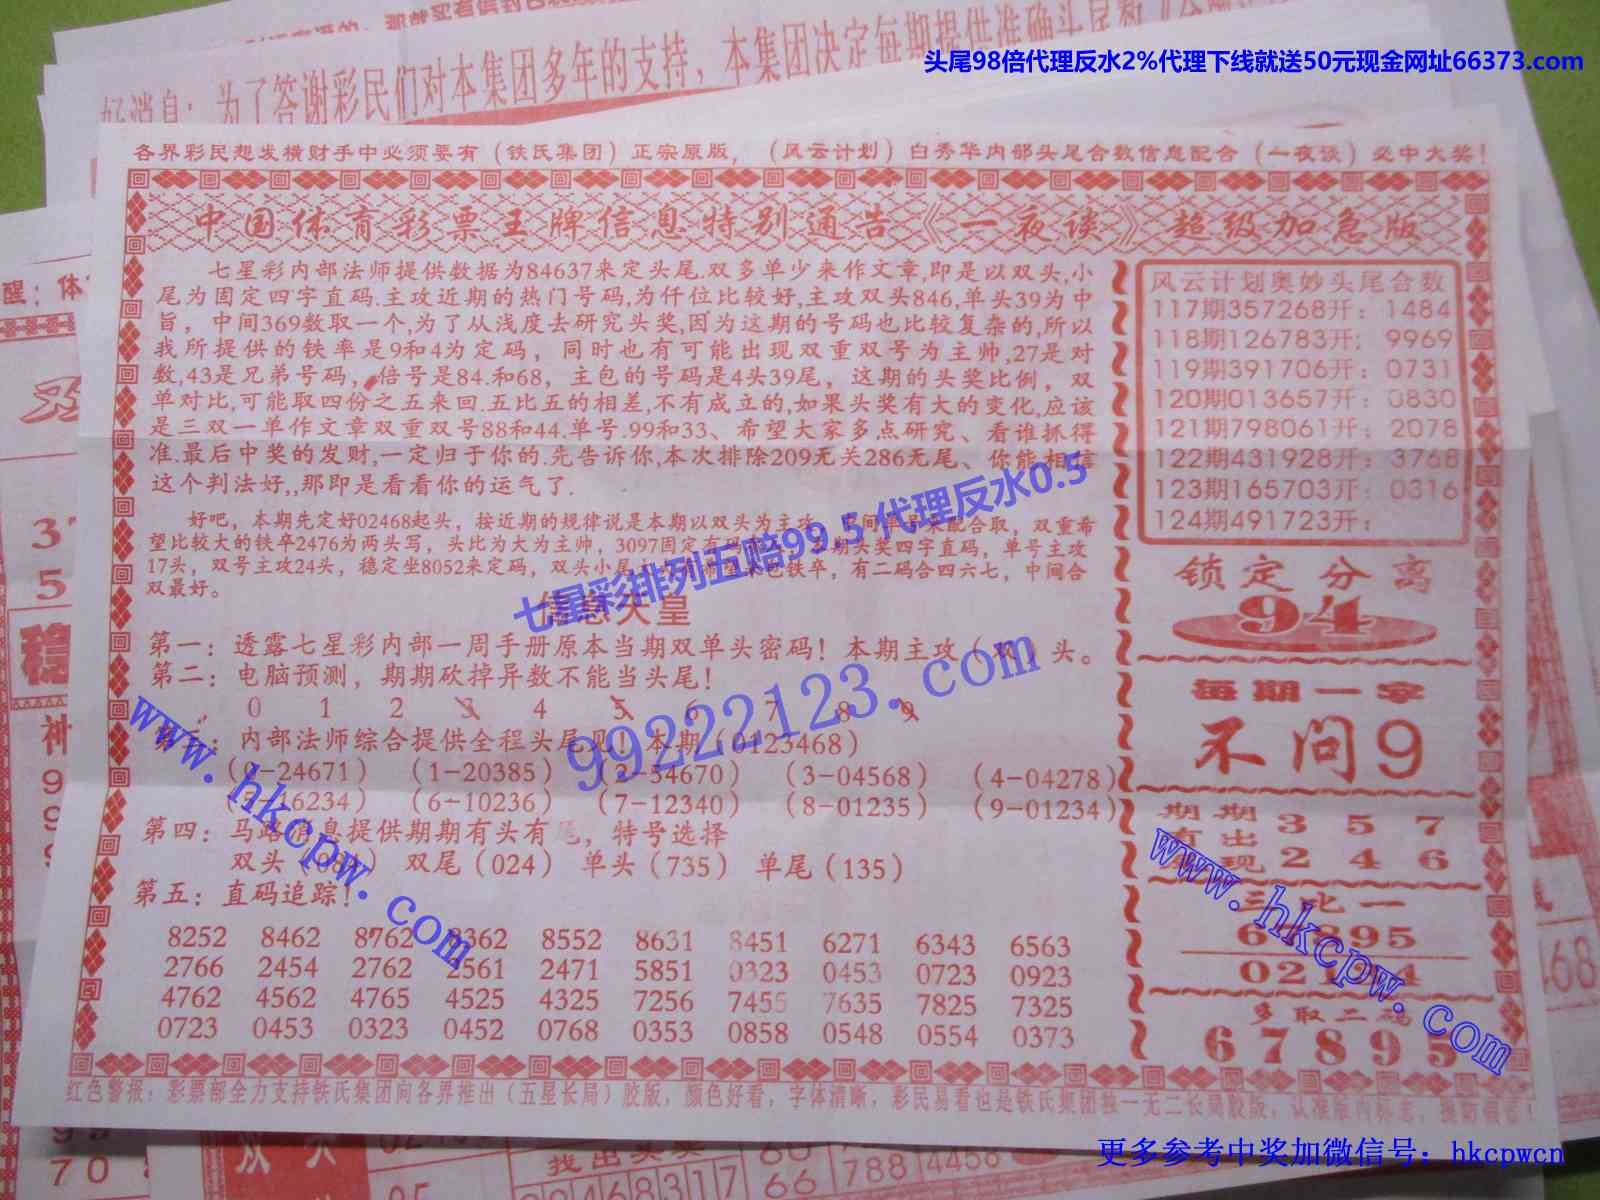 头尾98倍代理反水2%代理下线就送50元现金网址66373.com
好消息：为了答谢彩民们对本集团多年的支持，本集团决定每期提供准确头尾数
各界彩民想发横财手中必须要有（铁氏集团）正宗原版，（风云计划）白秀华内部头尾合数信息配合（一夜谈）必中大奖！
中国体育彩票王牌信息特别通告《一夜谈》超级加急版
七星彩内部法师提供数据为84637来定头尾.双多单少来作文章,即是以双头,小
尾为固定四字直码.主攻近期的热门号码,为仟位比较好,主攻双头846,单头39为中
旨，中间369数取一个,为了从浅度去研究头奖,因为这期的号码也比较复杂的,所以
我所提供的铁率是9和4为定码，同时也有可能出现双重双号为主帅,27是对
数,43是兄弟号码，倍号是84.和68，主包的号码是4头39尾，这期的头奖比例，双
单对比,可能取四份之五来回.五比五的相差,不有成立的,如果头奖有大的变化,应该
是三双一单作文章双重双号88和44.单号.99和33、希望大家多点研究、看谁抓得
准.最后中奖的发财,一定归于你的.先告诉你,本次排除209无关286无尾、你能相信
这个判法好,,那即是看看你的运气了.
好吧，本期先定好02468起头，按近期的规律说是本期以双头为主攻，中间单号来配合取，双重希
望比较大的铁卒2476为两头写，头比为大为主帅，3097固定有码 期头奖四字直码，单号主攻
17头，双号主攻24头，稳定坐8052来定码，双头小尾 包铁卒，有二码合四六七，中间合
双最好。
七星彩排列五赔99.5 代理反水0.5
信息天皇
第一：透露七星彩内部一周手册原本当期双单头密码！本期主攻（双）头。
第二：电脑预测，期期砍掉异数不能当头尾！
0 1 2 3 4 5 6 7 8 9
第三：内部法师综合提供全程头尾见！本期（0123468）
（0-24671）（1-20385）（2-54670）（3-04568）（4-04278）
（5-16234）（6-10236）（7-12340）（8-01235）（9-01234）
第四：马路消息提供期期有头有尾，特号选择
双头（08 ） 双尾（024） 单头（735） 单尾（135）
第五：直码追踪！
8252 8462 8762 8362 8552 8631 8451 6271 6343 6563
2766 2454 2762 2561 2471 5851 0323 0453 0723 0923
4762 4562 4765 4525 4325 7256 7455 7635 7825 7325
0723 0453 0323 0452 0768 0353 0858 0548 0554 0373
风云计划奥妙头尾合数
117期357268开：1484
118期126783开：9969
119期391706开：0731
120期013657开：0830
121期798061开：2078
122期431928开：3768
123期165703开：0316
124期491723开：
锁定分离
94
每期一字
不问9
期期 3 5 7
有出
现 2 4 6
三比一
67895
多取二码
67895
99222123.com
www.hkcpw.com
www.hkcpw.com
红色警报：彩票部全力支持铁氏集团向各界推出（五星长局）胶版，颜色好看，字体清晰，彩民易看也是铁氏集团独一无二长局胶版，认准版内标志，
更多参考中奖加微信号：hkcpwcn